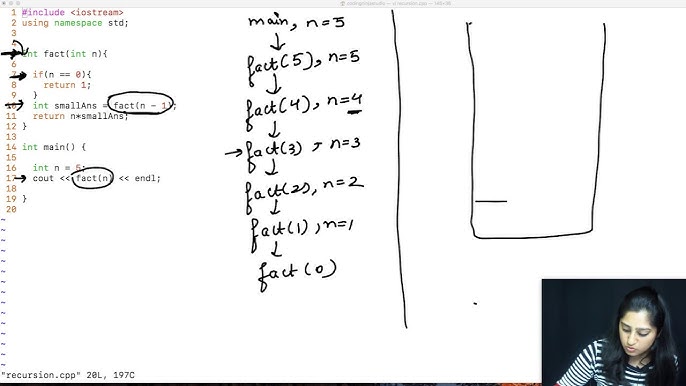 1 #include <iostream>
2 using namespace std;
3
4
5 int fact(int n){
6
7 if(n == 0){
8 return 1;
9 }
10 int smallAns = fact(n - 1);
11 return n*smallAns;
12 }
13
14 int main() {
15
16 int n = 5;
17 cout << fact(n) << endl;
18
19 }
20
~
~
~
~
~
~
~
~
~
~
~
~
"recursion.cpp" 20L, 197C
main, n=5
fact(5), n=5
fact(4), n=4
fact(3), n=3
fact(2), n=2
fact(1), n=1
fact(0)